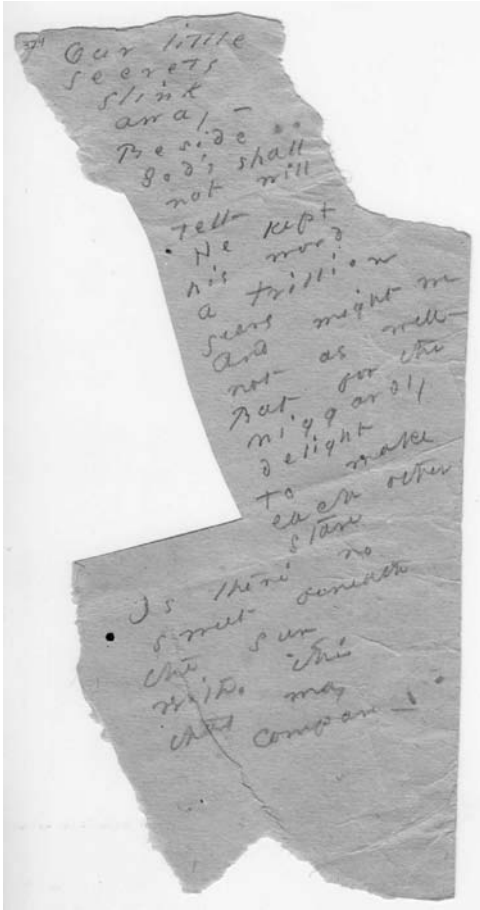 Our little
secrets
slink
away –
Beside
God's shall
not will
tell –
He kept
his word
a Trillion
years
And might we
not as well –
But for the
niggardly
delight
To make
each other
stare
Is there no
sweet beneath
the sun
With this
that may
compare –